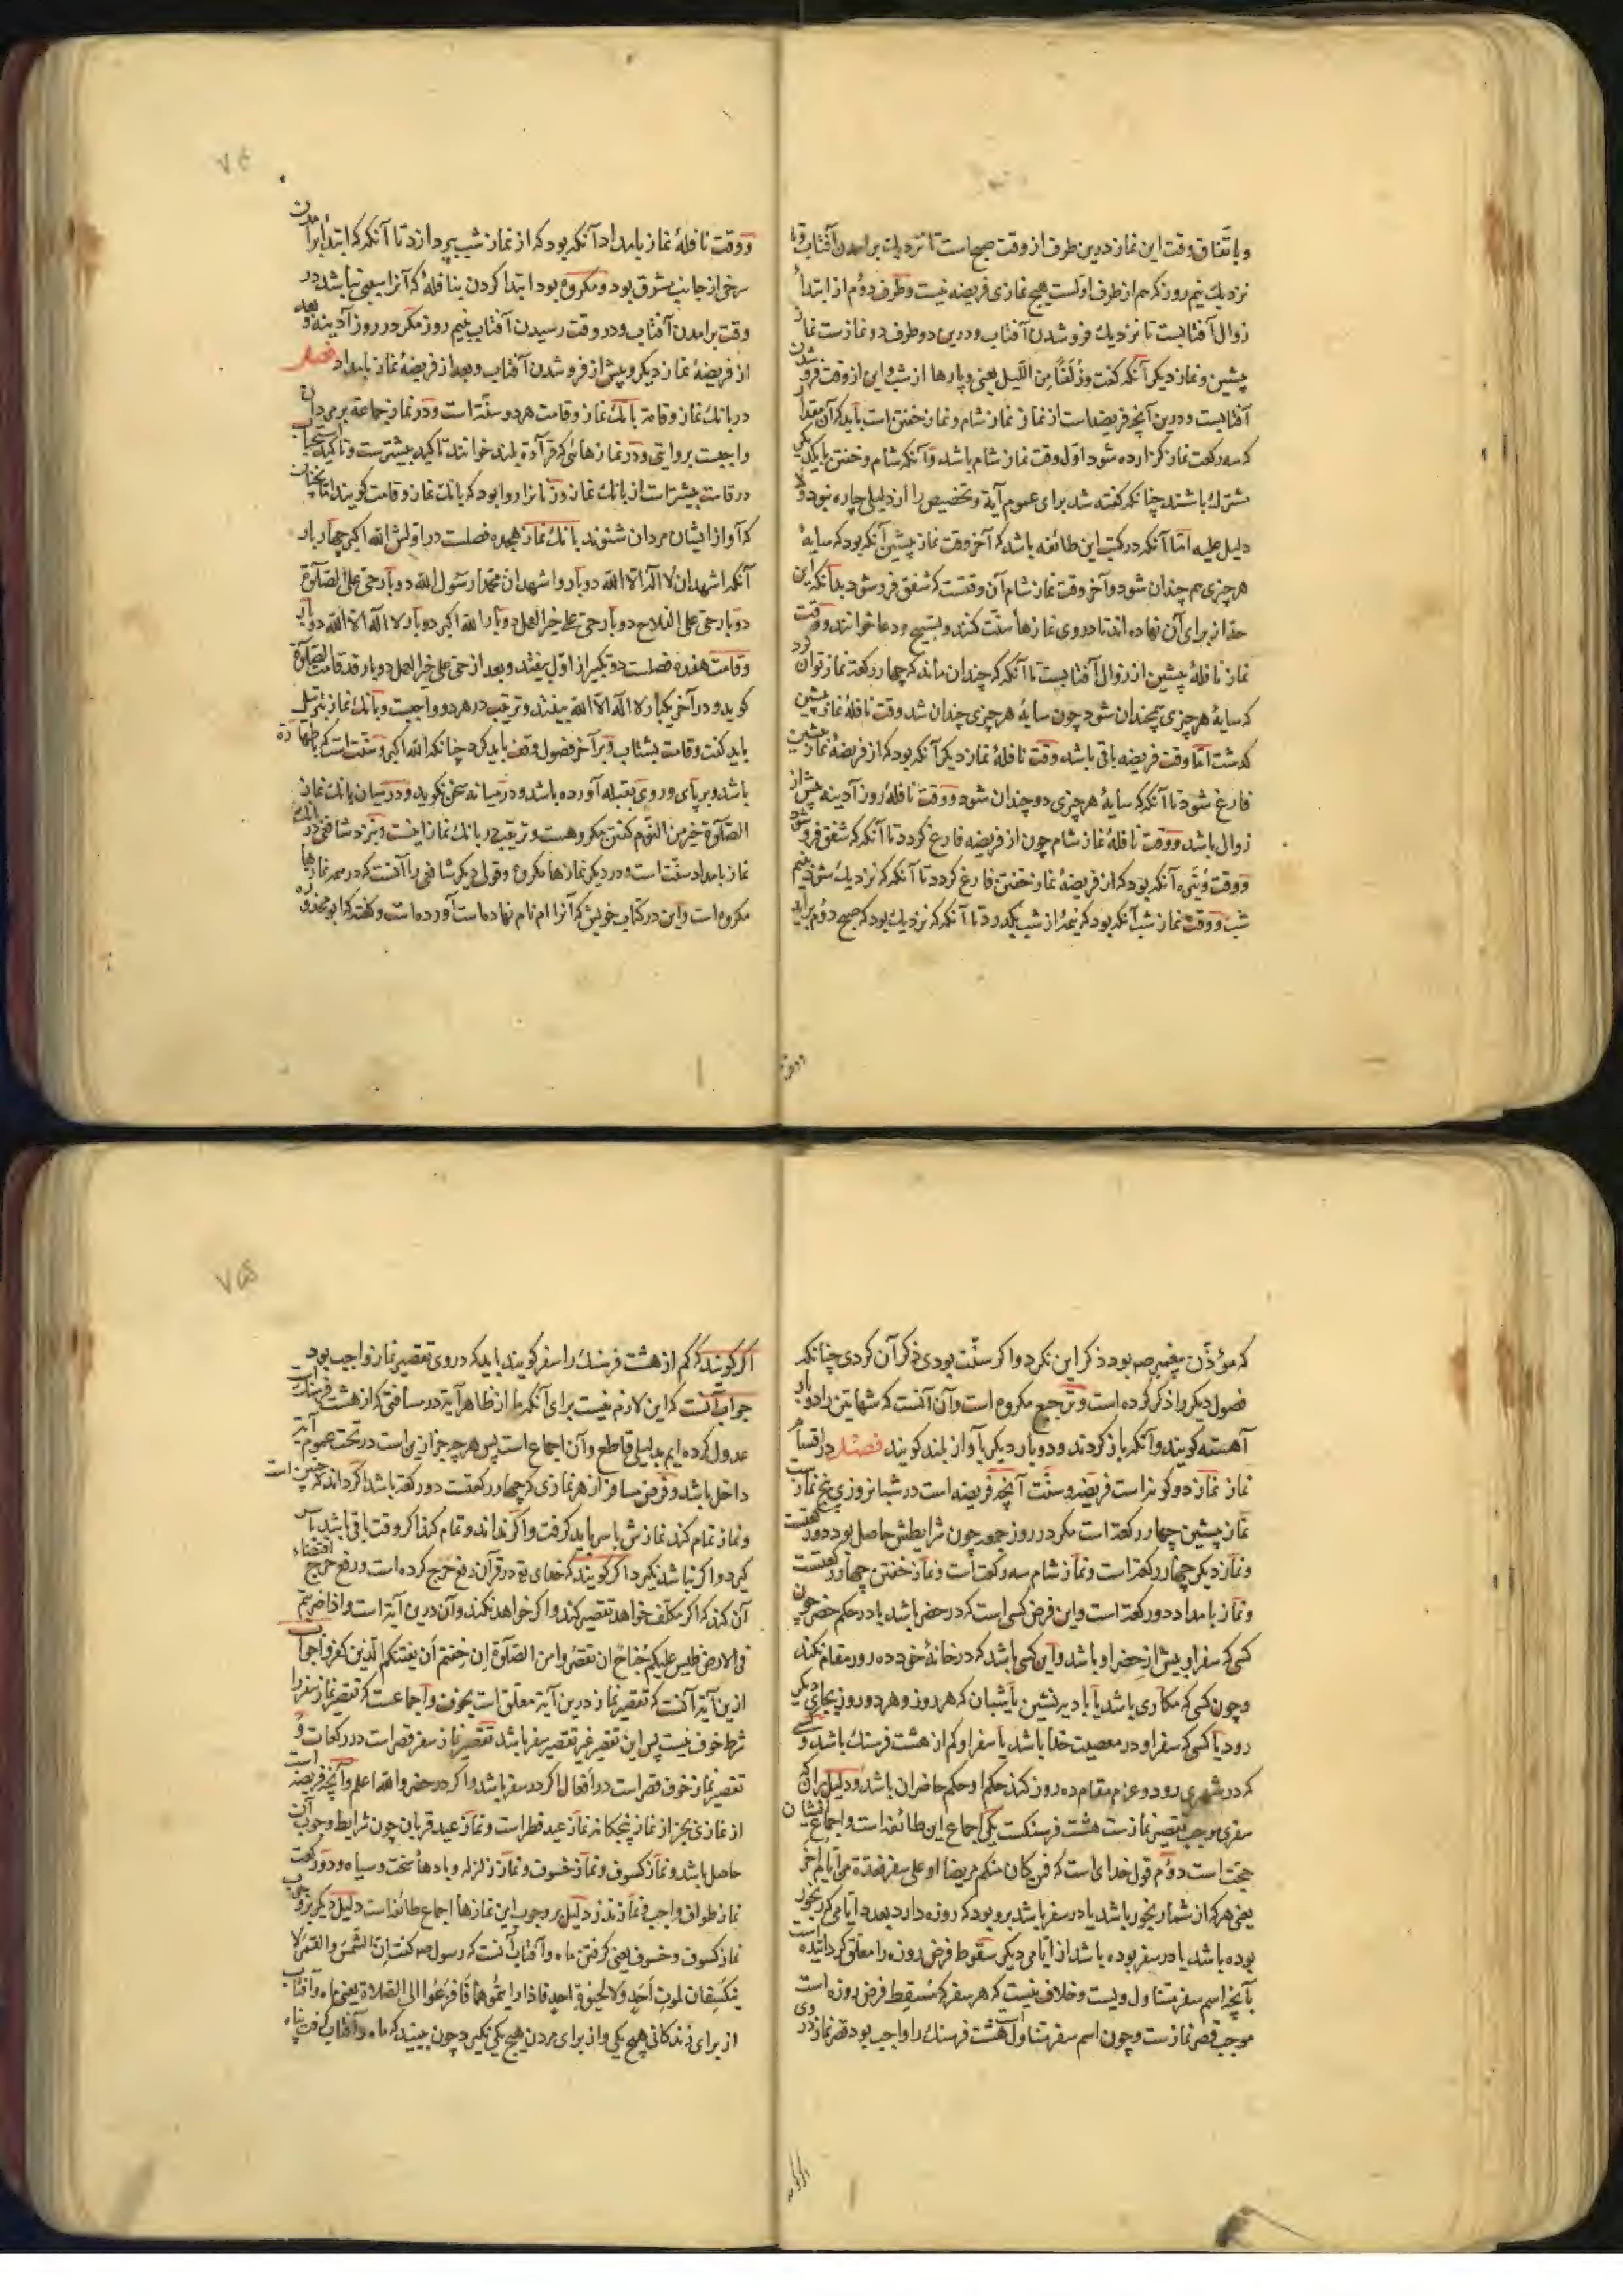 و باتفاق وقت این نماز درین طرف از وقت صبح است تا نزدیك برامدن آفتاب و تا
نزدیك نیم روز که هم از طرف اولست هیچ نمازی فریضه نیست و طرف دوم از ابتداء
زوال آفتابست تا نزدیك فرو شدن آفتاب و درین دو طرف دو نمازست نماز
پیشین و نماز دیگر آنگه گفت وزُلَفًا مِنَ اللَّیل یعنی و پارها از شب و این از وقت فرو شدن
آفتابست و درین آنچه فریضه است از نماز نماز شام و نماز خفتن است باید که آن مقدار
که سه رکعت نماز گزارده شود اول وقت نماز شام باشد و آنگه شام و خفتن با یکدیگر
مشترك باشند چنانکه گفته شد برای عموم آیة و تخصیص را از دلیلی چاره نبود و لا
دلیل علیه امّا آنکه در کتب این طائفه باشد که آخر وقت نماز پیشین آنگه بود که سایهٔ
هر چیزی هم چندان شود و آخر وقت نماز شام آن وقتست که شفق فرو شود بدانکه این
حد از برای آن نهاده اند تا در وی نمازها سنّت کنند و تسبیح و دعا خوانند و وقت
نماز نافلهٔ پیشین از زوال آفتابست تا آنگه که چندان ماند که چهار رکعة نماز توان کرد
که سایهٔ هر چیزی همچندان شود چون سایهٔ هر چیزی چندان شد وقت نافلهٔ نماز پیشین
گذشت امّا وقت فریضه باقی باشد وقت نافلهٔ نماز دیگر آنگه بود که از فریضهٔ نماز پیشین
فارغ شود تا آنگه که سایهٔ هر چیزی دو چندان شود و وقت نافلهٔ روز آدینه پیش از
زوال باشد و وقت نافلهٔ نماز شام چون از فریضه فارغ گردد تا آنگه که شفق فرو شود
و وقت وُتَیره آنگه بود که از فریضهٔ نماز خفتن فارغ گردد تا آنگه که نزدیك شود بنیم
شب و وقت نماز شب آنگه بود که نیمهٔ از شب بگذرد تا آنگه که نزدیك بود که صبح دوم براید
و وقت نافلهٔ نماز بامداد آنگه بود که از نماز شب بپردازد تا آنگه که ابتداء برآمدن
سرخی از جانب مشرق بود و مکروه بود ابتدا کردن بنافلهٔ که آنرا سببی نباشد در
وقت برامدن آفتاب و در وقت رسیدن آفتاب بنیم روز مگر در روز آدینه و بعد
از فریضهٔ نماز دیگر و پیش از فرو شدن آفتاب و بعد از فریضهٔ نماز بامداد فصل
در بانك نماز و قامة بانك نماز و قامت هر دو سنّت است و در نماز جماعة بر مردان
واجبست بروایتی و در نماز هائی که قرآءة بلند خوانند تاکید بیشترست و تاکید استحباب
در قامت بیشترست از بانك نماز و زنانرا روا بود که بانك نماز و قامت گویند امّا نچنان
که آواز ایشان مردان شنوند بانك نماز هجده فصلست در اولش الله اکبر چهار بار
آنگه اشهد ان لا اله الا الله دو بار و اشهد ان محمدا رسول الله دو بار حی علی الصلوة
دو بار حی علی الفلاح دو بار حی علی خیر العمل دو بار الله اکبر دو بار لا اله الا الله دو بار
و قامت هفده فصلست دو تکبیر از اول بیفتد و بعد از حی علی خیر العمل دو بار قد قامت الصلوة
گوید و در آخر یکبار لا اله الا الله بیفتد و ترتیب در هر دو واجبست و بانك نماز بترتیل
باید گفت و قامت بشتاب و بر آخر فصول وقف باید کرد چنانکه الله اکبر و سنّت است که باطهارة
باشد و بر پای و روی بقبله آورده باشد و در میانه سخن نگوید و در میان بانك نماز
الصلوة خیر من النوم گفتن مکروهست و تریب در بانك نماز اینست و بنزد شافعی در بانك
نماز بامداد سنّت است و در دیگر نمازها مکروه و قول دیگر شافعی را آنست که در همه نمازها
مکروه است و این در کتاب خویش که آنرا ام نام نهاده است آورده است و گفته که ابو محذوره
که مؤذّن پیغمبر صم بود ذکر این نکرد و اگر سنّت بودی ذکر آن کردی چنانکه
فصول دیگر را ذکر کرده است و ترجیع مکروه است و آن آنست که شهادتین را دو بار
آهسته گویند و آنگه باز گردند و دو بار دیگر بآواز بلند گویند فصل در اقسام
نماز نماز دو گونه است فریضه و سنّت آنچه فریضه است در شبانروزی پنج نماز ست
نماز پیشین چهار رکعة است مگر در روز جمعه چون شرایطش حاصل بود دو رکعتست
و نماز دیگر چهار رکعة است و نماز شام سه رکعة است و نماز خفتن چهار رکعتست
و نماز بامداد دو رکعة است و این فرض کسی است که در حضر باشد یا در حکم حضر چون
کسی که سفر او بیش از حضر او باشد و این کسی باشد که در خانهٔ خود ده روز مقام نکند
و چون کسی که مکاری باشد یا بادیه نشین یا شبان که هر روز و هر دو روز بجای دیگر
رود یا کسی که سفر او در معصیت خدا باشد یا سفر او کم از هشت فرسنك باشد و کسی
که در شهری رود و عزم مقام ده روز کند حکم او حکم حاضران باشد و دلیل بر آن که
سفری موجب تقصیر نمازست هشت فرسنگست یکی اجماع این طائفه است و اجماع ایشان
حجّت است دوّم قول خدای است که فمن کان منکم مریضا او علی سفر فعدة من ایام اخر
یعنی هر که از شما رنجور باشد یا در سفر باشد برو بود که روزه دارد بعدد ایامی که رنجور
بوده باشد یا در سفر بوده باشد از ایامی دیگر سقوط فرض روزه را معلّق گردانیده است
بآنچه اسم سفر متناول ویست و خلاف نیست که هر سفر که مُسقِط فرض روزه است
موجب قصر نمازست و چون اسم سفر متناول است هشت فرسنك را واجب بود قصر نماز در وی
اگر گویند که کم از هشت فرسنك را سفر گویند باید که در وی تقصیر نماز واجب بود
جواب آنست که این لازم نیست برای آنکه ما از ظاهر آیة در مسافتی که از هشت فرسنك است
عدول کرده ایم بدلیلی قاطع و آن اجماع است پس هر چه جز ازین است در تحت عموم آیة
داخل باشد و فرض مسافر از هر نمازی که چهار رکعتست دو رکعة باشد اگر داند که چنین است
و نماز تمام کند نمازش با سر باید گرفت و اگر نداند و تمام کند اگر وقت باقی باشد با سر
گیرد و اگر نباشد نگیرد اگر گویند که خدای تع در قرآن رفع حرج کرده است و رفع حرج اقتضاء
آن کند که اگر مکلّف خواهد تقصیر کند و اگر خواهد نکند و آن درین آیة است و اذا ضربتم
فی الارض فلیس علیکم جُناحٌ ان تقصروا من الصلوة ان خفتم أن یفتنکم الّذین کفروا جواب
ازین آیة آنست که تقصیر نماز درین آیة معلّق است بخوف و اجماعست که تقصیر نماز سفر را
شرط خوف نیست پس این تقصیر غیر تقصیر سفر باشد تقصیر نماز سفر قصر است در رکعات و
تقصیر نماز خوف قصر است در افعال اگر در سفر باشد و اگر در حضر والله اعلم و آنچه فریضه است
از نمازی بجز از نماز پنجگانه نماز عید فطر است و نماز عید قربان چون شرایط وجوب آن
حاصل باشد و نماز کسوف و نماز خسوف و نماز زلزله و بادهاء سخت و سیاه و دو رکعت
نماز طواف واجب و نماز نذر دلیل بر وجوب این نمازها اجماع طائفه است دلیل دیگر بر وجوب
نماز کسوف و خسوف یعنی گرفتن ماه و آفتاب آنست که رسول صم گفت اِنّ الشّمس والقمر لا
ینکسفان لموتِ اَحَدٍ ولا لحیوة احدٍ فاذا رایتموهما فافزعوا الی الصلاة یعنی ماه و آفتاب
از برای زندگانی هیچ یکی و از برای مردن هیچ یکی نگیرد چون ببینید که ماه و آفتاب گرفت پناه